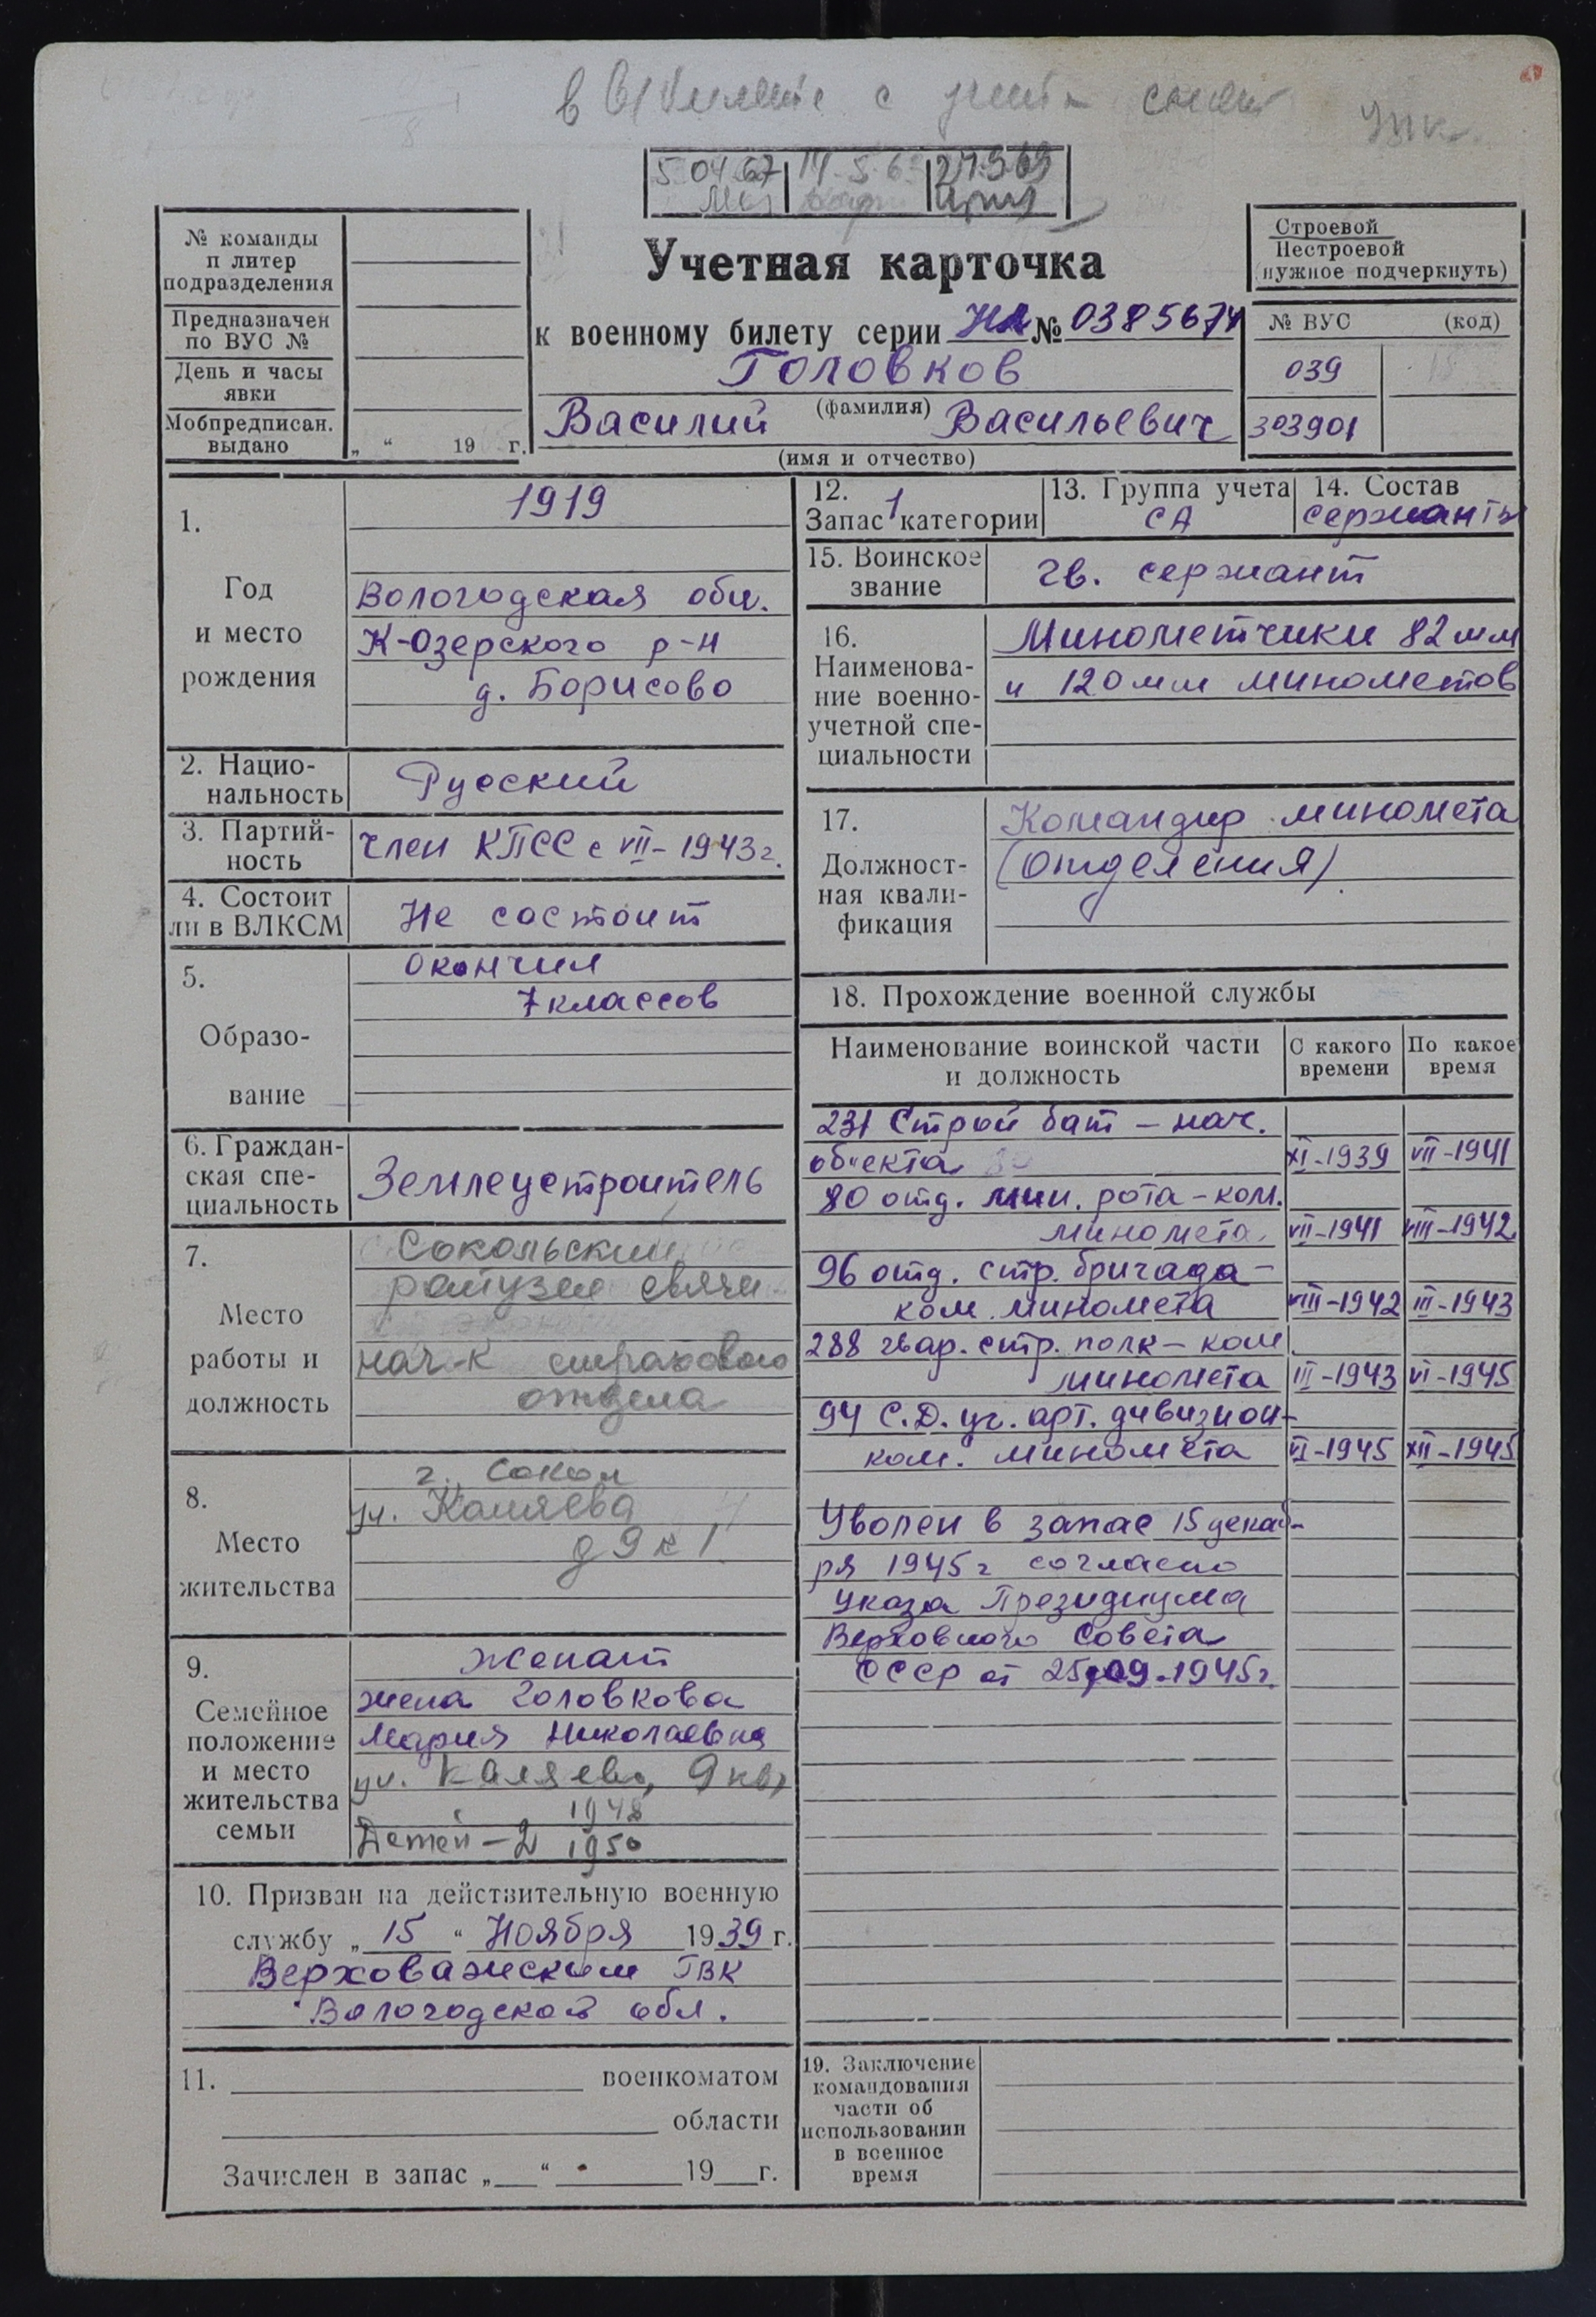 с
5 04 67
14 5 6
27.9.69
№ команды
п литер
подразделения
Предназначен
по ВУС №
День и часы
явки
Мобпредписан.
выдано
„ “ 19 г.
Учетная карточка
к военному билету серии НЛ № 0385674
Головков
(фамилия)
Василий Васильевич
(имя и отчество)
Строевой
Нестроевой
(нужное подчеркнуть)
№ ВУС (код)
039
303901
1.
Год
и место
рождения
1919
Вологодская обл.
К-Озерского р-н
д. Борисово
2. Нацио-
нальность
Русский
3. Партий-
ность
Член КПСС с VII-1943г.
4. Состоит
ли в ВЛКСМ
Не состоит
5.
Образо-
вание
Окончил
7 классов
6. Граждан-
ская спе-
циальность
Землеустроитель
7.
Место
работы и
должность
Сокольский
райузел связи
нач-к страхового
отдела
8.
Место
жительства
г. Сокол
ул. Каляева
д 9 к 1
9.
Семейное
положение
и место
жительства
семьи
Женат
жена Головкова
Мария Николаевна
ул. Каляева, 9 кв 1
1948
Детей – 2 1950
10. Призван на действительную военную
службу „ 15 “ Ноября 1939 г.
Верховажским РВК
Вологодской обл.
11. военкоматом
области
Зачислен в запас „ “ 19 г.
12.
Запас 1 категории
13. Группа учета
СА
14. Состав
сержанты
15. Воинское
звание
гв. сержант
16.
Наименова-
ние военно-
учетной спе-
циальности
Минометчики 82 мм
и 120 мм минометов
17.
Должност-
ная квали-
фикация
Командир миномета
(отделения)
18. Прохождение военной службы
Наименование воинской части
и должность
С какого
времени
По какое
время
231 Строй бат – нач.
объекта XI-1939 VII-1941
80 отд. мин. рота – ком.
миномета VII-1941 VIII-1942
96 отд. стр. бригада –
ком. миномета VIII-1942 III-1943
288 гвар. стр. полк – ком
миномета III-1943 VI-1945
94 С.Д. уч. арт. дивизион –
ком. миномета VI-1945 XII-1945
Уволен в запас 15 декаб-
ря 1945 г согласно
Указа Президиума
Верховного Совета
СССР от 25.09.1945г.
19. Заключение
командования
части об
использовании
в военное
время